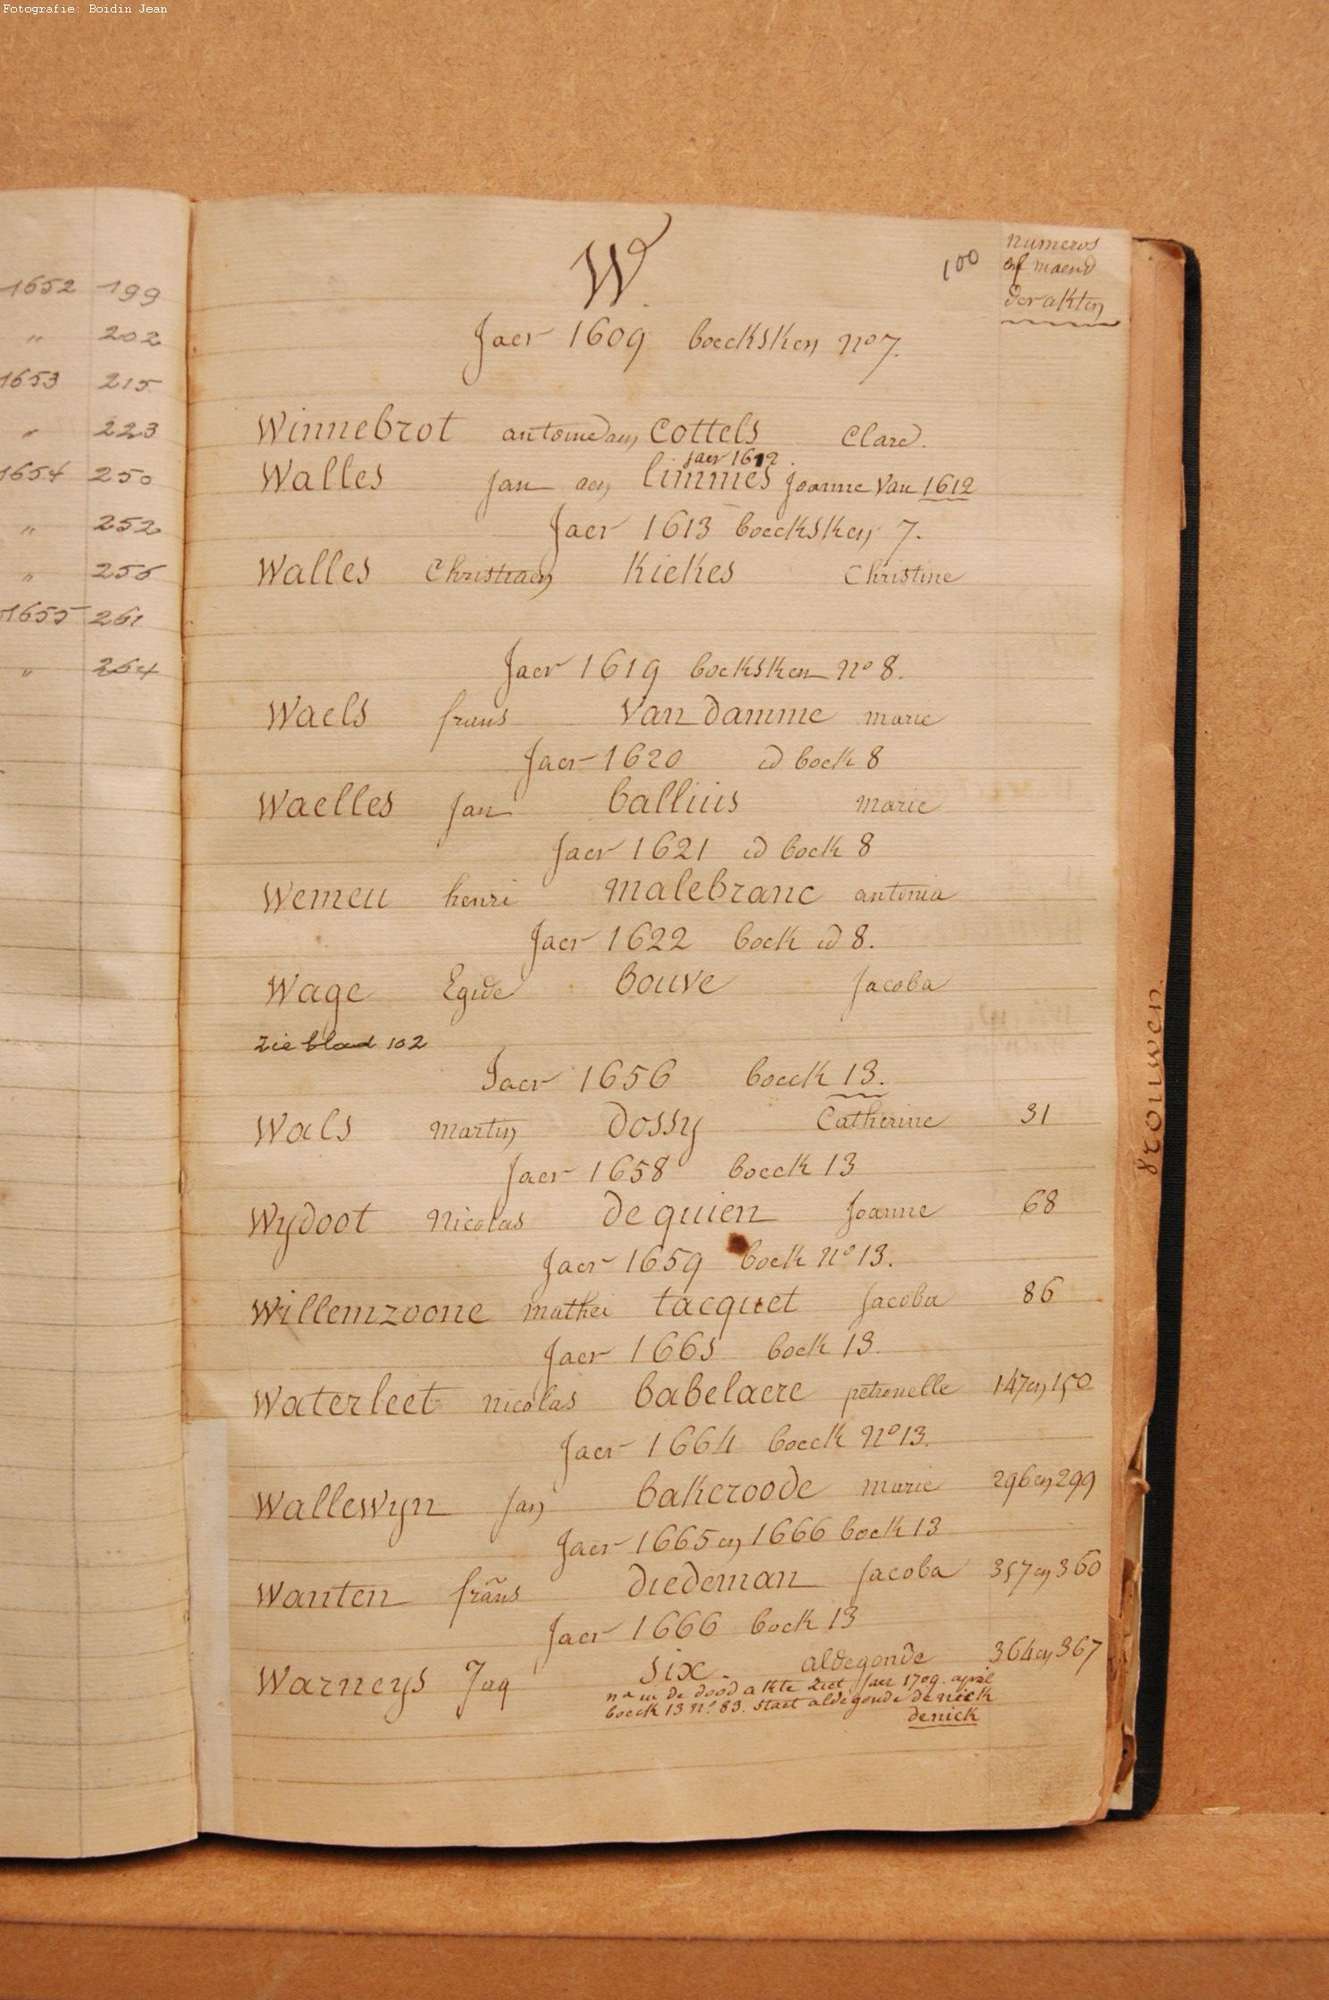 Fotografie: Boidin Jean
1652 199
" 202
1653 215
" 223
1654 250
" 252
" 256
1655 261
" 264
W.
100
numeros
of maend
der akten
Jaer 1609 boecksken no 7.
Winnebrot antoine aen Cottels Clare.
jaer 1612.
Walles Jan aen limmes joanne Van 1612
Jaer 1613 boecksken 7.
Walles Christiaen Kiekes Christine
Jaer 1619 boeksken no 8.
Waels frans Van Damme marie
Jaer 1620 id boek 8
Waelles Jan ballius marie
Jaer 1621 id boek 8
Wemeu henri malebranc antinia
Jaer 1622 boek id 8.
Wage Egide bouve Jacoba
Zie blad 102
Jaer 1656 boeck 13.
Wals martin Dossy Catherine 31
Jaer 1658 boeck 13
Wydoot Nicolas De quien Joanne 68
Jaer 1659 boek No 13.
Willemzoone mathei tacquet Jacoba 86
Jaer 1661 boek 13.
Waterleet nicolas babelaere petronelle 147 en 150
Jaer 1664 boeck No 13.
Wallewyn Jan bakeroode marie 296 en 299
Jaer 1665 en 1666 boek 13
Wanten frans Diedeman Jacoba 357 en 360
Jaer 1666 boek 13
Warneys Jaq Six aldegonde 364 en 367
in de dood akte ziet Jaer 1709. april
boeck 13 no 83. staet aldegonde denick
denick
vrouwen